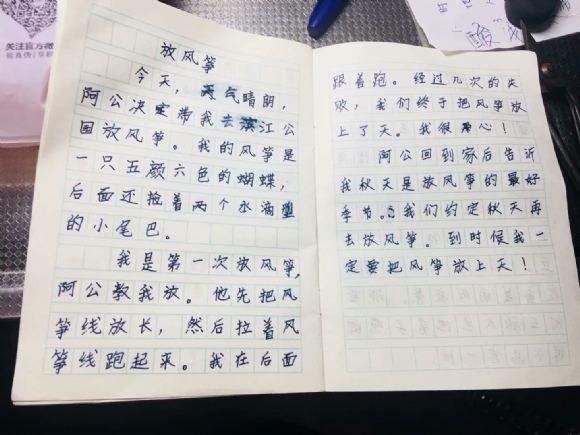 关注官方微
酸
放风筝
今天，天气晴朗，
阿公决定带我去滨江公
园放风筝。我的风筝是
一只五颜六色的蝴蝶，
后面还拖着两个水滴型
的小尾巴。
我是第一次放风筝，
阿公教我放。他先把风
筝线放长，然后拉着风
筝线跑起来。我在后面
跟着跑。经过几次的失
败，我们终于把风筝放
上了天。我很开心！
阿公回到家后告诉
我秋天是放风筝的最好
季节。我们约定秋天再
去放风筝。到时候我一
定要把风筝放上天！